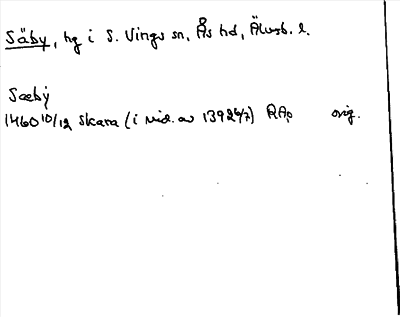 Säby, hg i S. Vings sn, Ås hd, Älvsb. l.
Sæbẏ
1460 10/12 Skara (i vid. av 1392 6/7) RAp orig.